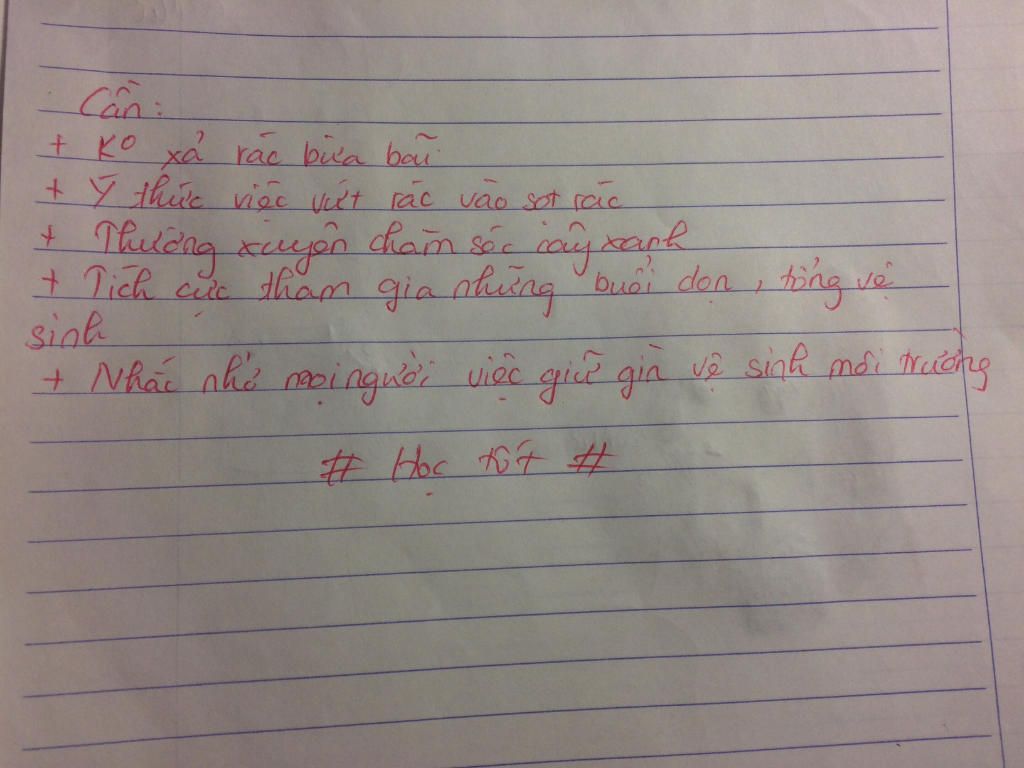 Cần:
+ Ko xả rác bừa bãi
+ Ý thức việc vứt rác vào sọt rác
+ Thường xuyên chăm sóc cây xanh
+ Tích cực tham gia những buổi dọn, tổng vệ
sinh
+ Nhắc nhở mọi người việc giữ gìn vệ sinh môi trường
# Học tốt #